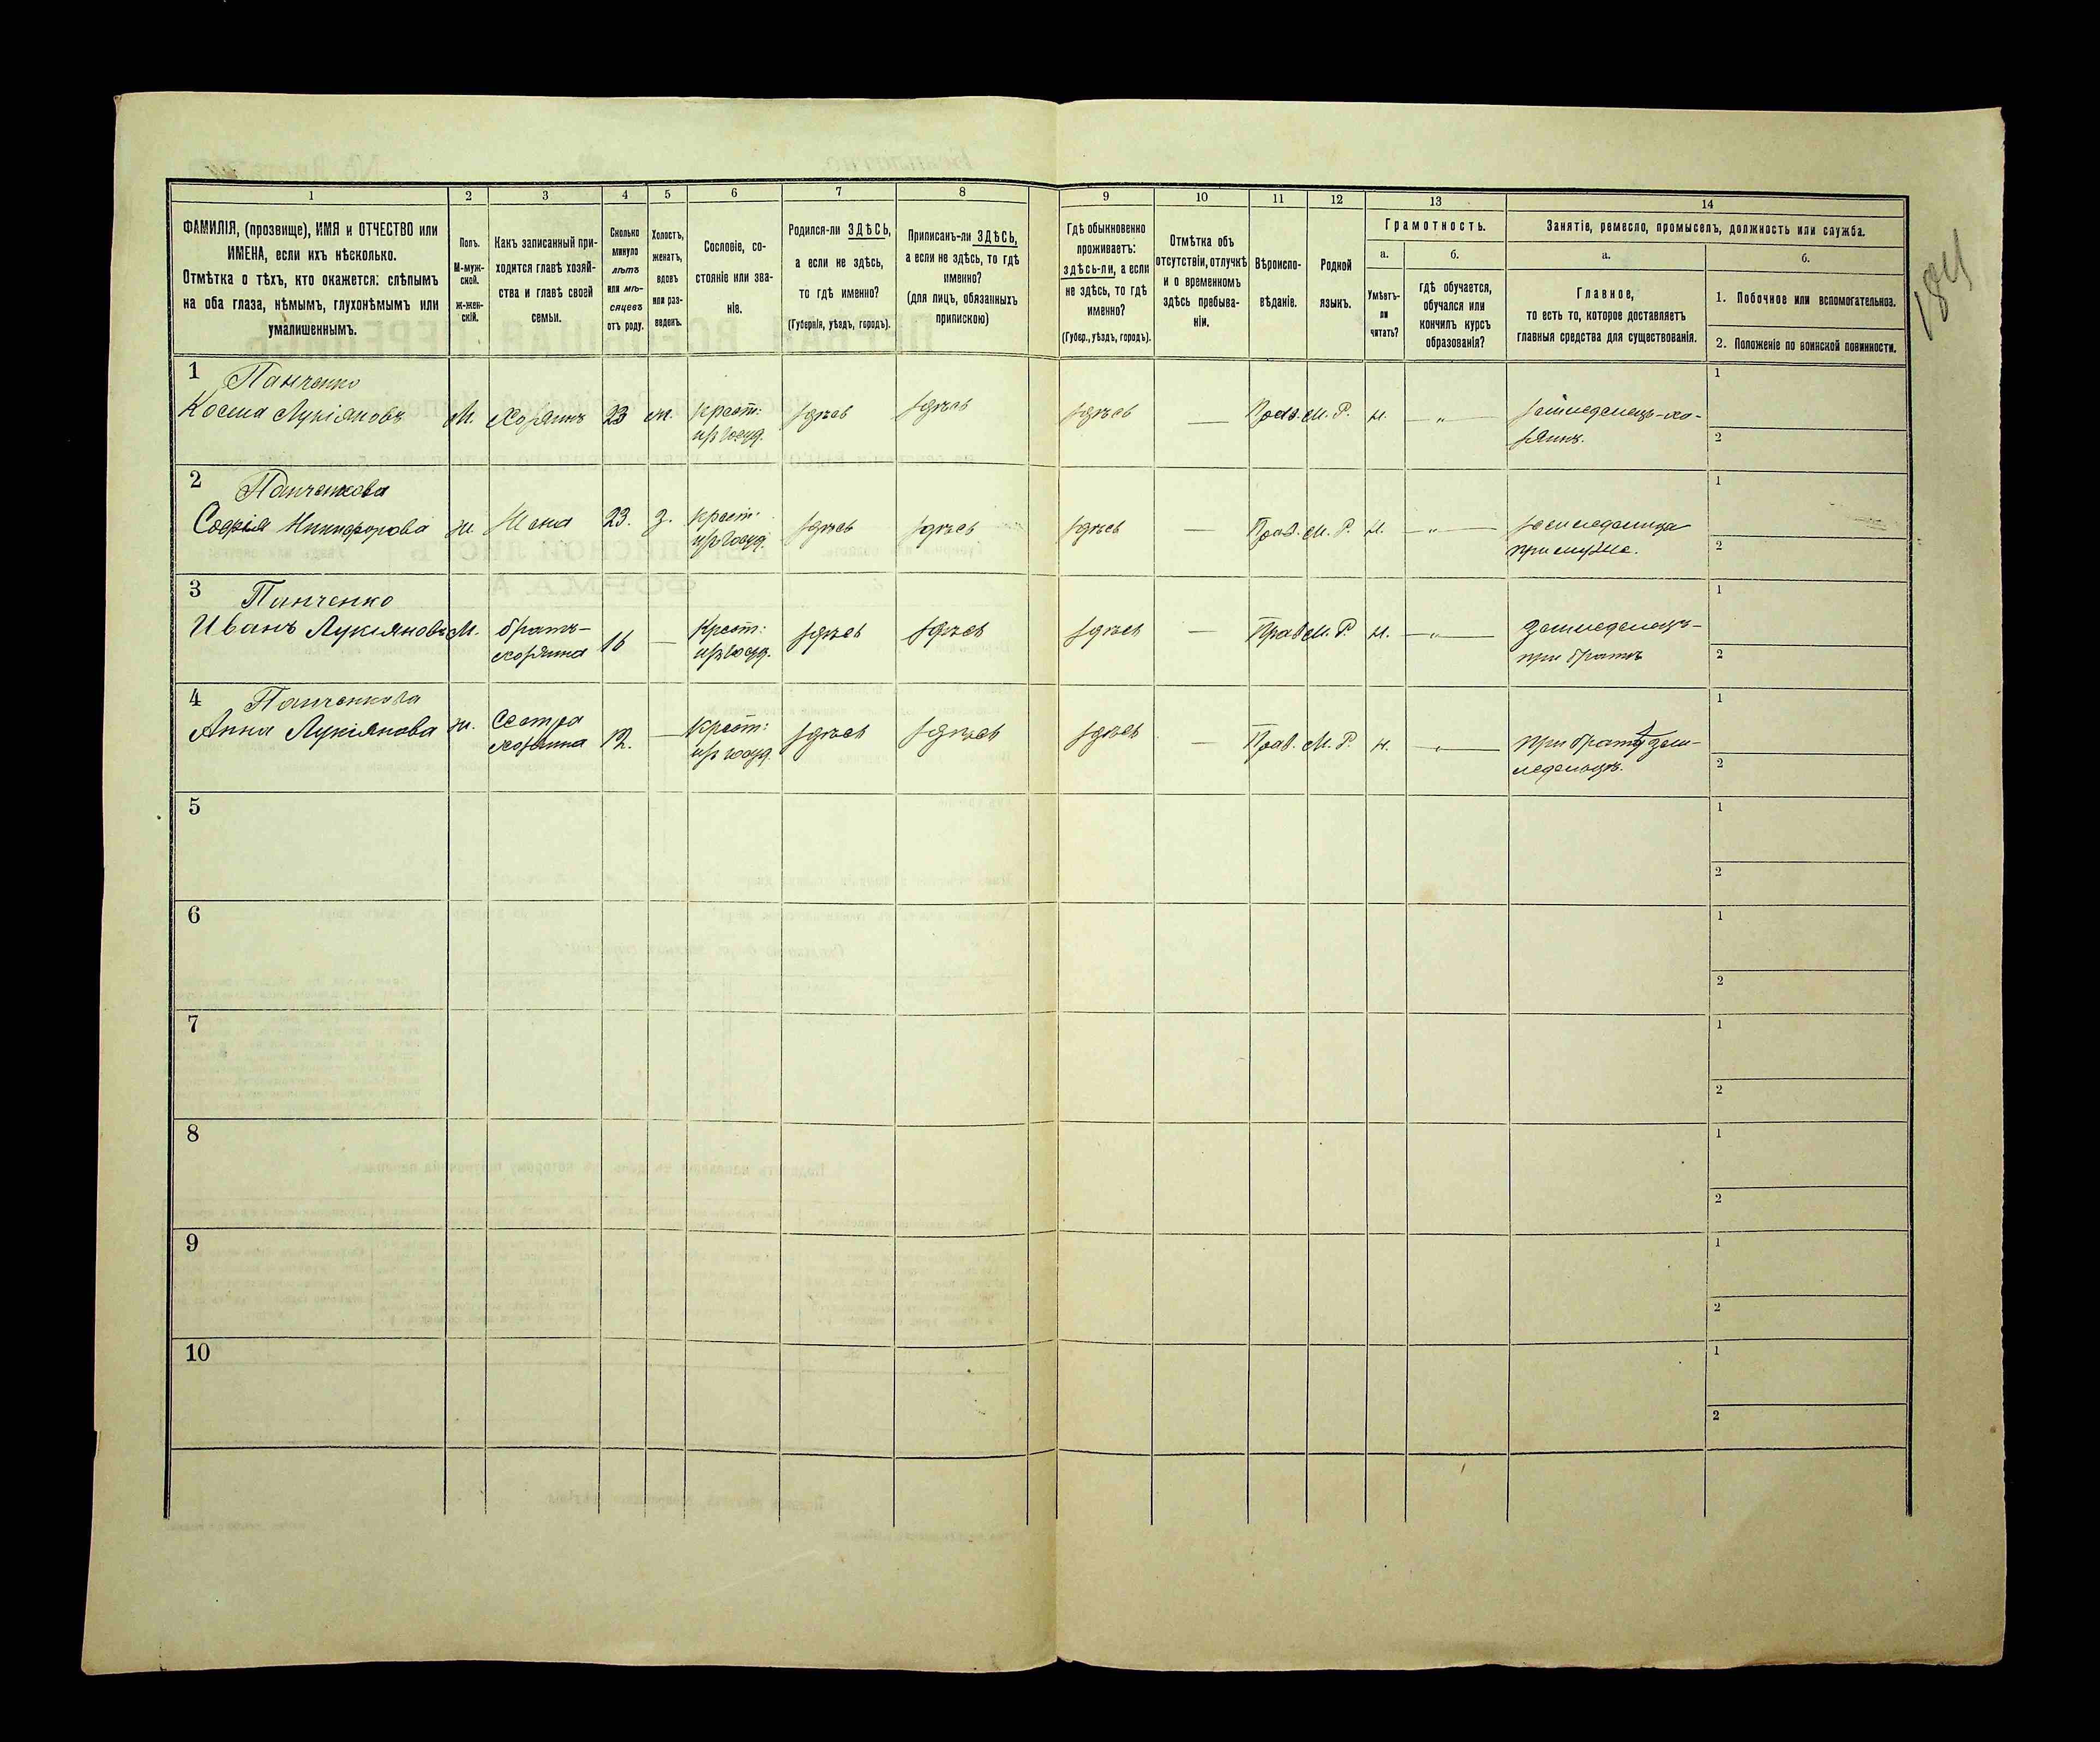 1 2 3 4 5 6 7 8 9 10 11 12 13 14
ФАМИЛІЯ, (прозвище), ИМЯ и ОТЧЕСТВО или
ИМЕНА, если ихъ нѣсколько.
Отмѣтка о тѣхъ, кто окажется: слѣпымъ
на оба глаза, нѣмымъ, глухонѣмымъ или
умалишеннымъ.
Полъ.
М-муж-
ской.
Ж-жен-
скій.
Какъ записанный при-
ходится главѣ хозяй-
ства и главѣ своей
семьи.
Сколько
минуло
лѣтъ
или мѣ-
сяцевъ
отъ роду.
Холостъ,
женатъ,
вдовъ
или раз-
веденъ.
Сословіе, со-
стояніе или зва-
ніе.
Родился-ли ЗДѢСЬ,
а если не здѣсь,
то гдѣ именно?
(Губернія, уѣздъ, городъ).
Приписанъ-ли ЗДѢСЬ,
а если не здѣсь, то гдѣ
именно?
(для лицъ, обязанныхъ
припискою)
Гдѣ обыкновенно
проживаетъ:
здѣсь-ли, а если
не здѣсь, то гдѣ
именно?
(Губер., уѣздъ, городъ).
Отмѣтка объ
отсутствіи, отлучкѣ
и о временномъ
здѣсь пребыва-
ніи.
Вѣроиспо-
вѣданіе.
Родной
языкъ.
Грамотность.
а.
Умѣетъ-
ли
читать?
б.
гдѣ обучается,
обучался или
кончилъ курсъ
образованія?
Занятіе, ремесло, промыселъ, должность или служба.
а.
Главное,
то есть то, которое доставляетъ
главныя средства для существованія.
б.
1. Побочное или вспомогательное.
2. Положеніе по воинской повинности.
184
1 Панченко
Косма Лукіяновъ М. Хозяинъ 23 ж. Крест: здѣсь здѣсь здѣсь — Прав. М. Р. н. — „ — земледелецъ-хо-
из госуд. зяинъ.
1
2
2 Панченкова
Софія Никифорова ж. Жена 23. з. Крест: здѣсь здѣсь здѣсь — Прав. М. Р. н. — „ — земледелица
из госуд. при мужѣ.
1
2
3 Панченко
Иванъ Лукіяновъ М. братъ- 16 — Крест: здѣсь здѣсь здѣсь — Прав М. Р. н. — „ — земледелецъ-
хозяина из госуд. при братѣ
1
2
4 Панченкова
Анна Лукіянова ж. Сестра 12. — Крест: здѣсь здѣсь здѣсь — Прав. М. Р. н. — „ — при братѣ зем-
хозяина из госуд. ледельцѣ.
1
2
5
1
2
6
1
2
7
1
2
8
1
2
9
1
2
10
1
2